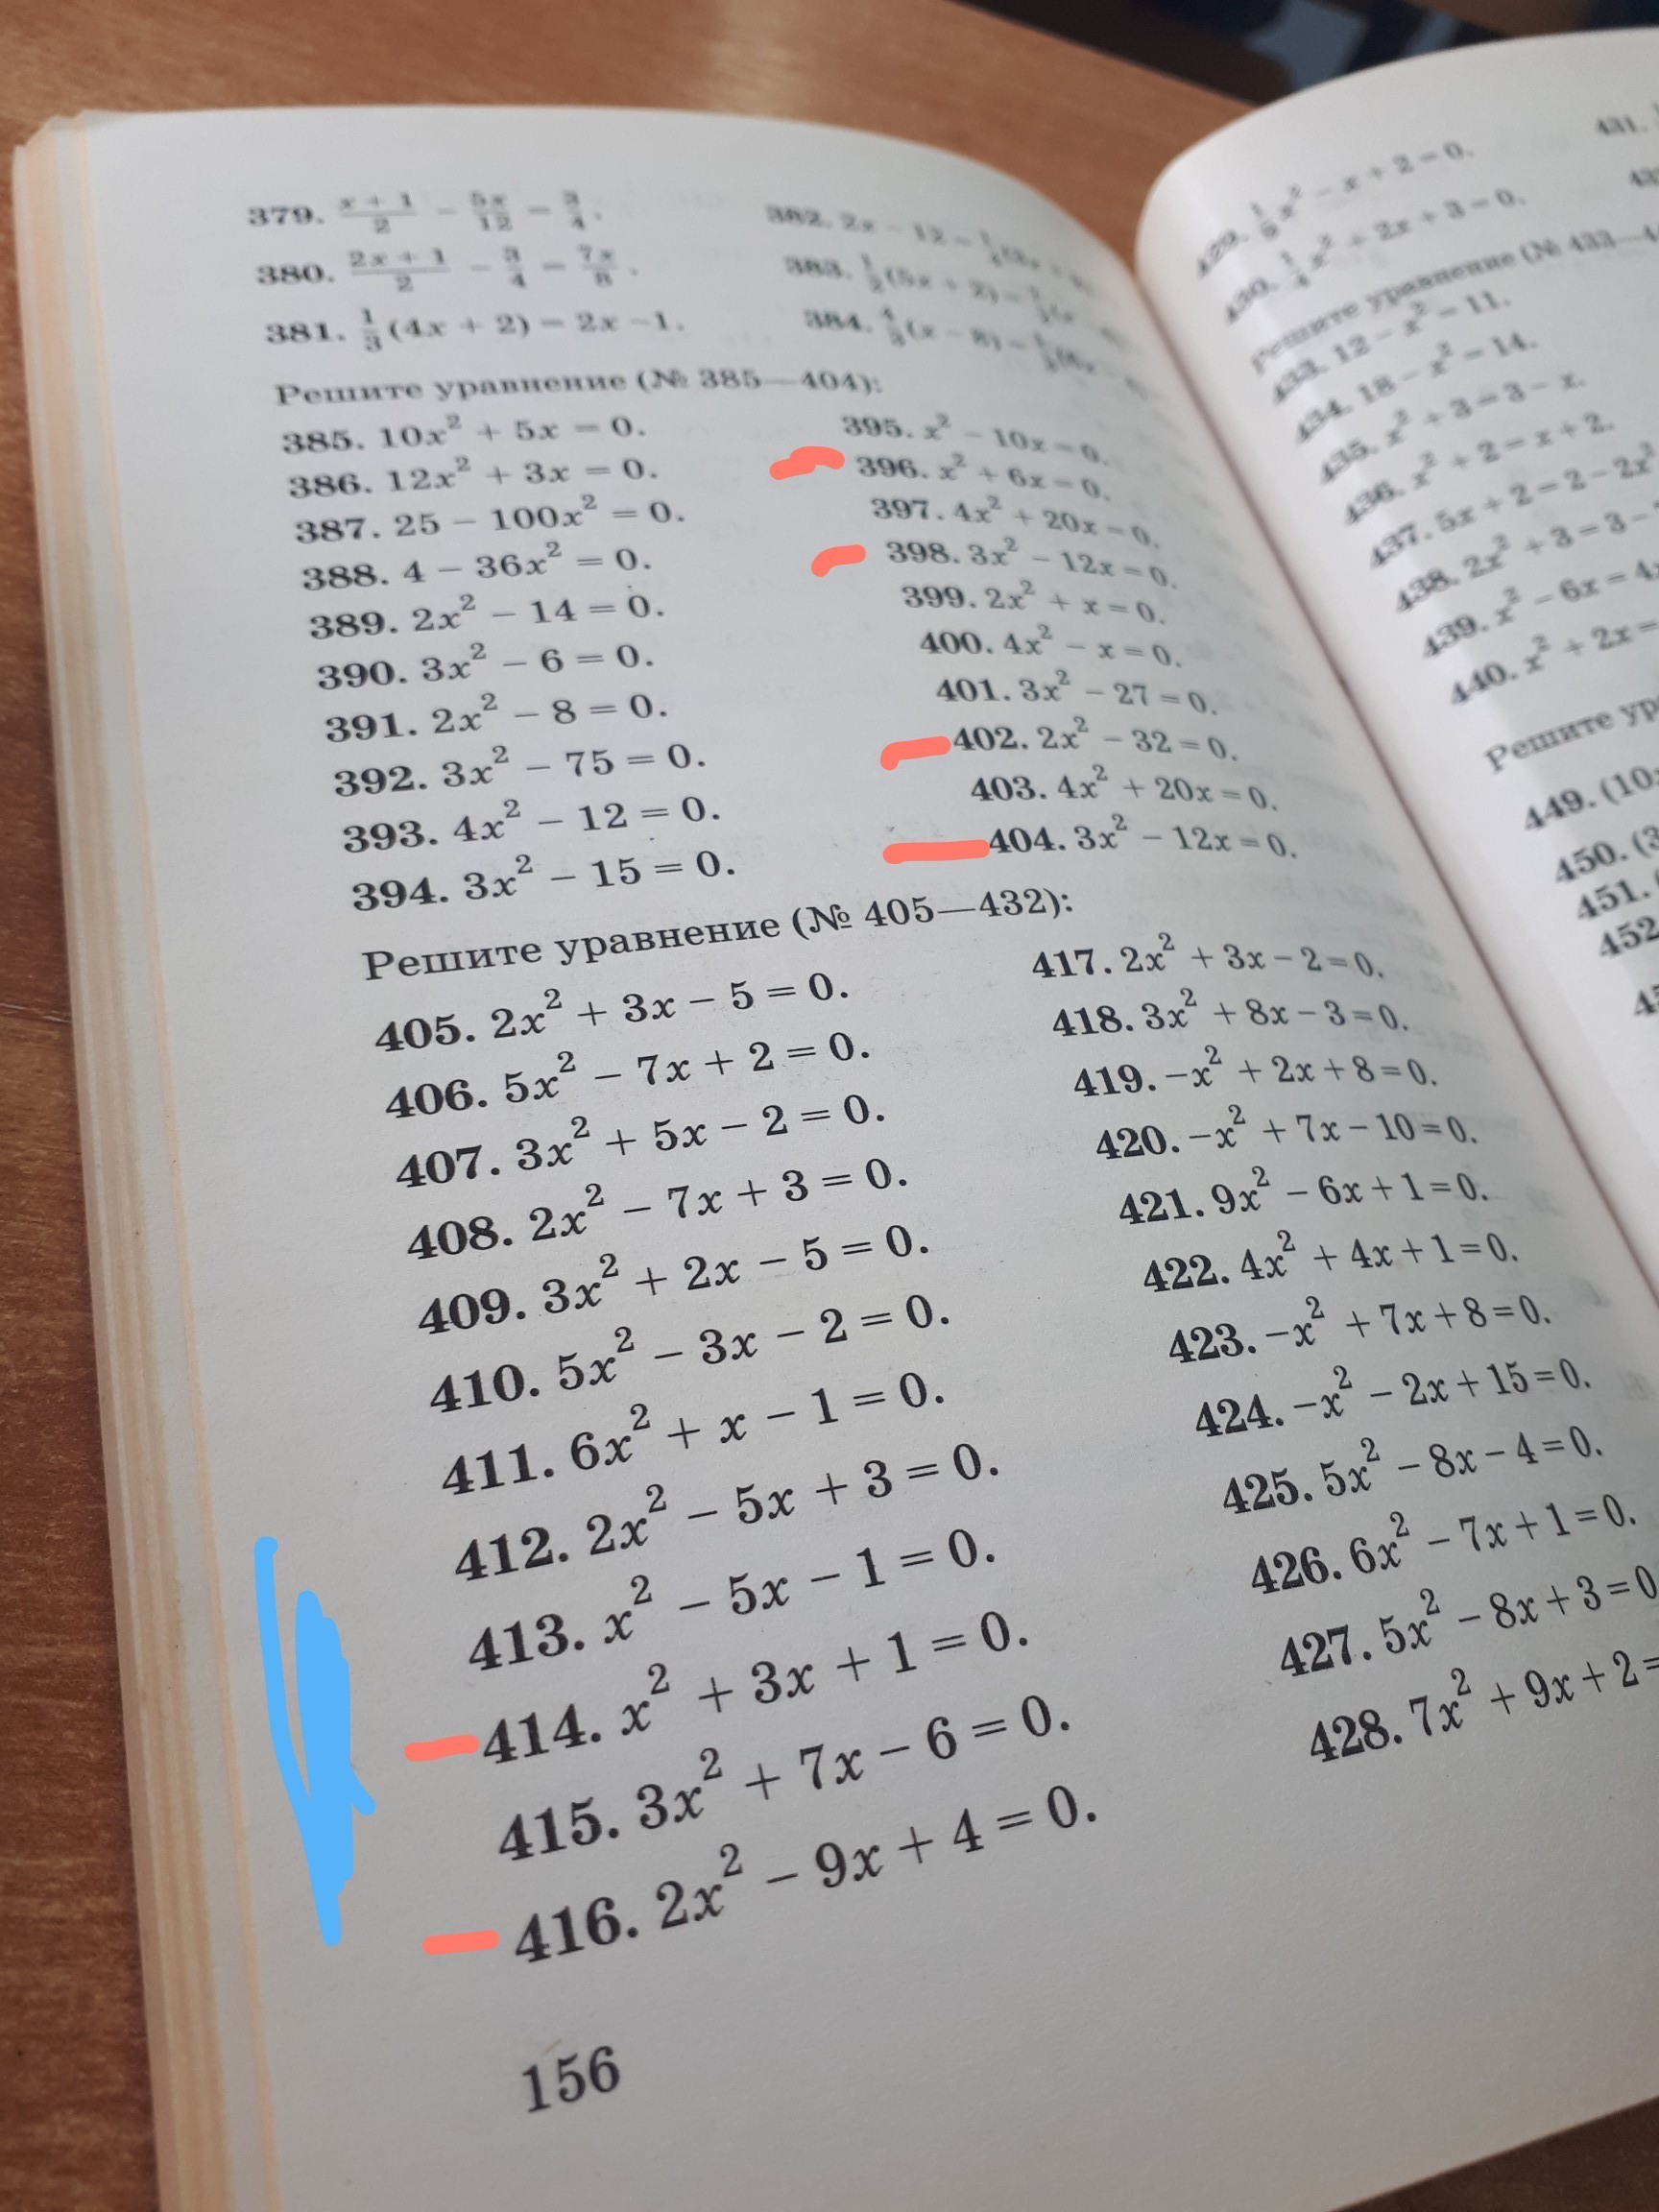 379. (x + 1)/2 − 5x/12 = 3/4.
380. (2x + 1)/2 − 3/4 = 7x/8.
381. 1/3 (4x + 2) = 2x − 1.
382. 2x − 12 =
383. 1/2 (5x + 2) =
384. (x − 8) =
Решите уравнение (№ 385—404):
385. 10x² + 5x = 0.
386. 12x² + 3x = 0.
387. 25 − 100x² = 0.
388. 4 − 36x² = 0.
389. 2x² − 14 = 0.
390. 3x² − 6 = 0.
391. 2x² − 8 = 0.
392. 3x² − 75 = 0.
393. 4x² − 12 = 0.
394. 3x² − 15 = 0.
395. x² − 10x = 0.
396. x² + 6x = 0.
397. 4x² + 20x = 0.
398. 3x² − 12x = 0.
399. 2x² + x = 0.
400. 4x² − x = 0.
401. 3x² − 27 = 0.
402. 2x² − 32 = 0.
403. 4x² + 20x = 0.
404. 3x² − 12x = 0.
Решите уравнение (№ 405—432):
405. 2x² + 3x − 5 = 0.
406. 5x² − 7x + 2 = 0.
407. 3x² + 5x − 2 = 0.
408. 2x² − 7x + 3 = 0.
409. 3x² + 2x − 5 = 0.
410. 5x² − 3x − 2 = 0.
411. 6x² + x − 1 = 0.
412. 2x² − 5x + 3 = 0.
413. x² − 5x − 1 = 0.
414. x² + 3x + 1 = 0.
415. 3x² + 7x − 6 = 0.
416. 2x² − 9x + 4 = 0.
417. 2x² + 3x − 2 = 0.
418. 3x² + 8x − 3 = 0.
419. −x² + 2x + 8 = 0.
420. −x² + 7x − 10 = 0.
421. 9x² − 6x + 1 = 0.
422. 4x² + 4x + 1 = 0.
423. −x² + 7x + 8 = 0.
424. −x² − 2x + 15 = 0.
425. 5x² − 8x − 4 = 0.
426. 6x² − 7x + 1 = 0.
427. 5x² − 8x + 3 = 0
428. 7x² + 9x + 2 =
156
429. x² − x + 2 = 0.
430. 1/4 x² + 2x + 3 = 0.
431.
Решите уравнение (№ 433—4
433. 12 − x² = 11.
434. 18 − x² = 14.
435. x² + 3 = 3 − x.
436. x² + 2 = x + 2.
437. 5x + 2 = 2 − 2x²
438. 2x² + 3 = 3 −
439. x² − 6x = 4x
440. x² + 2x =
Решите ур
449. (10
450. (3
451. (
452